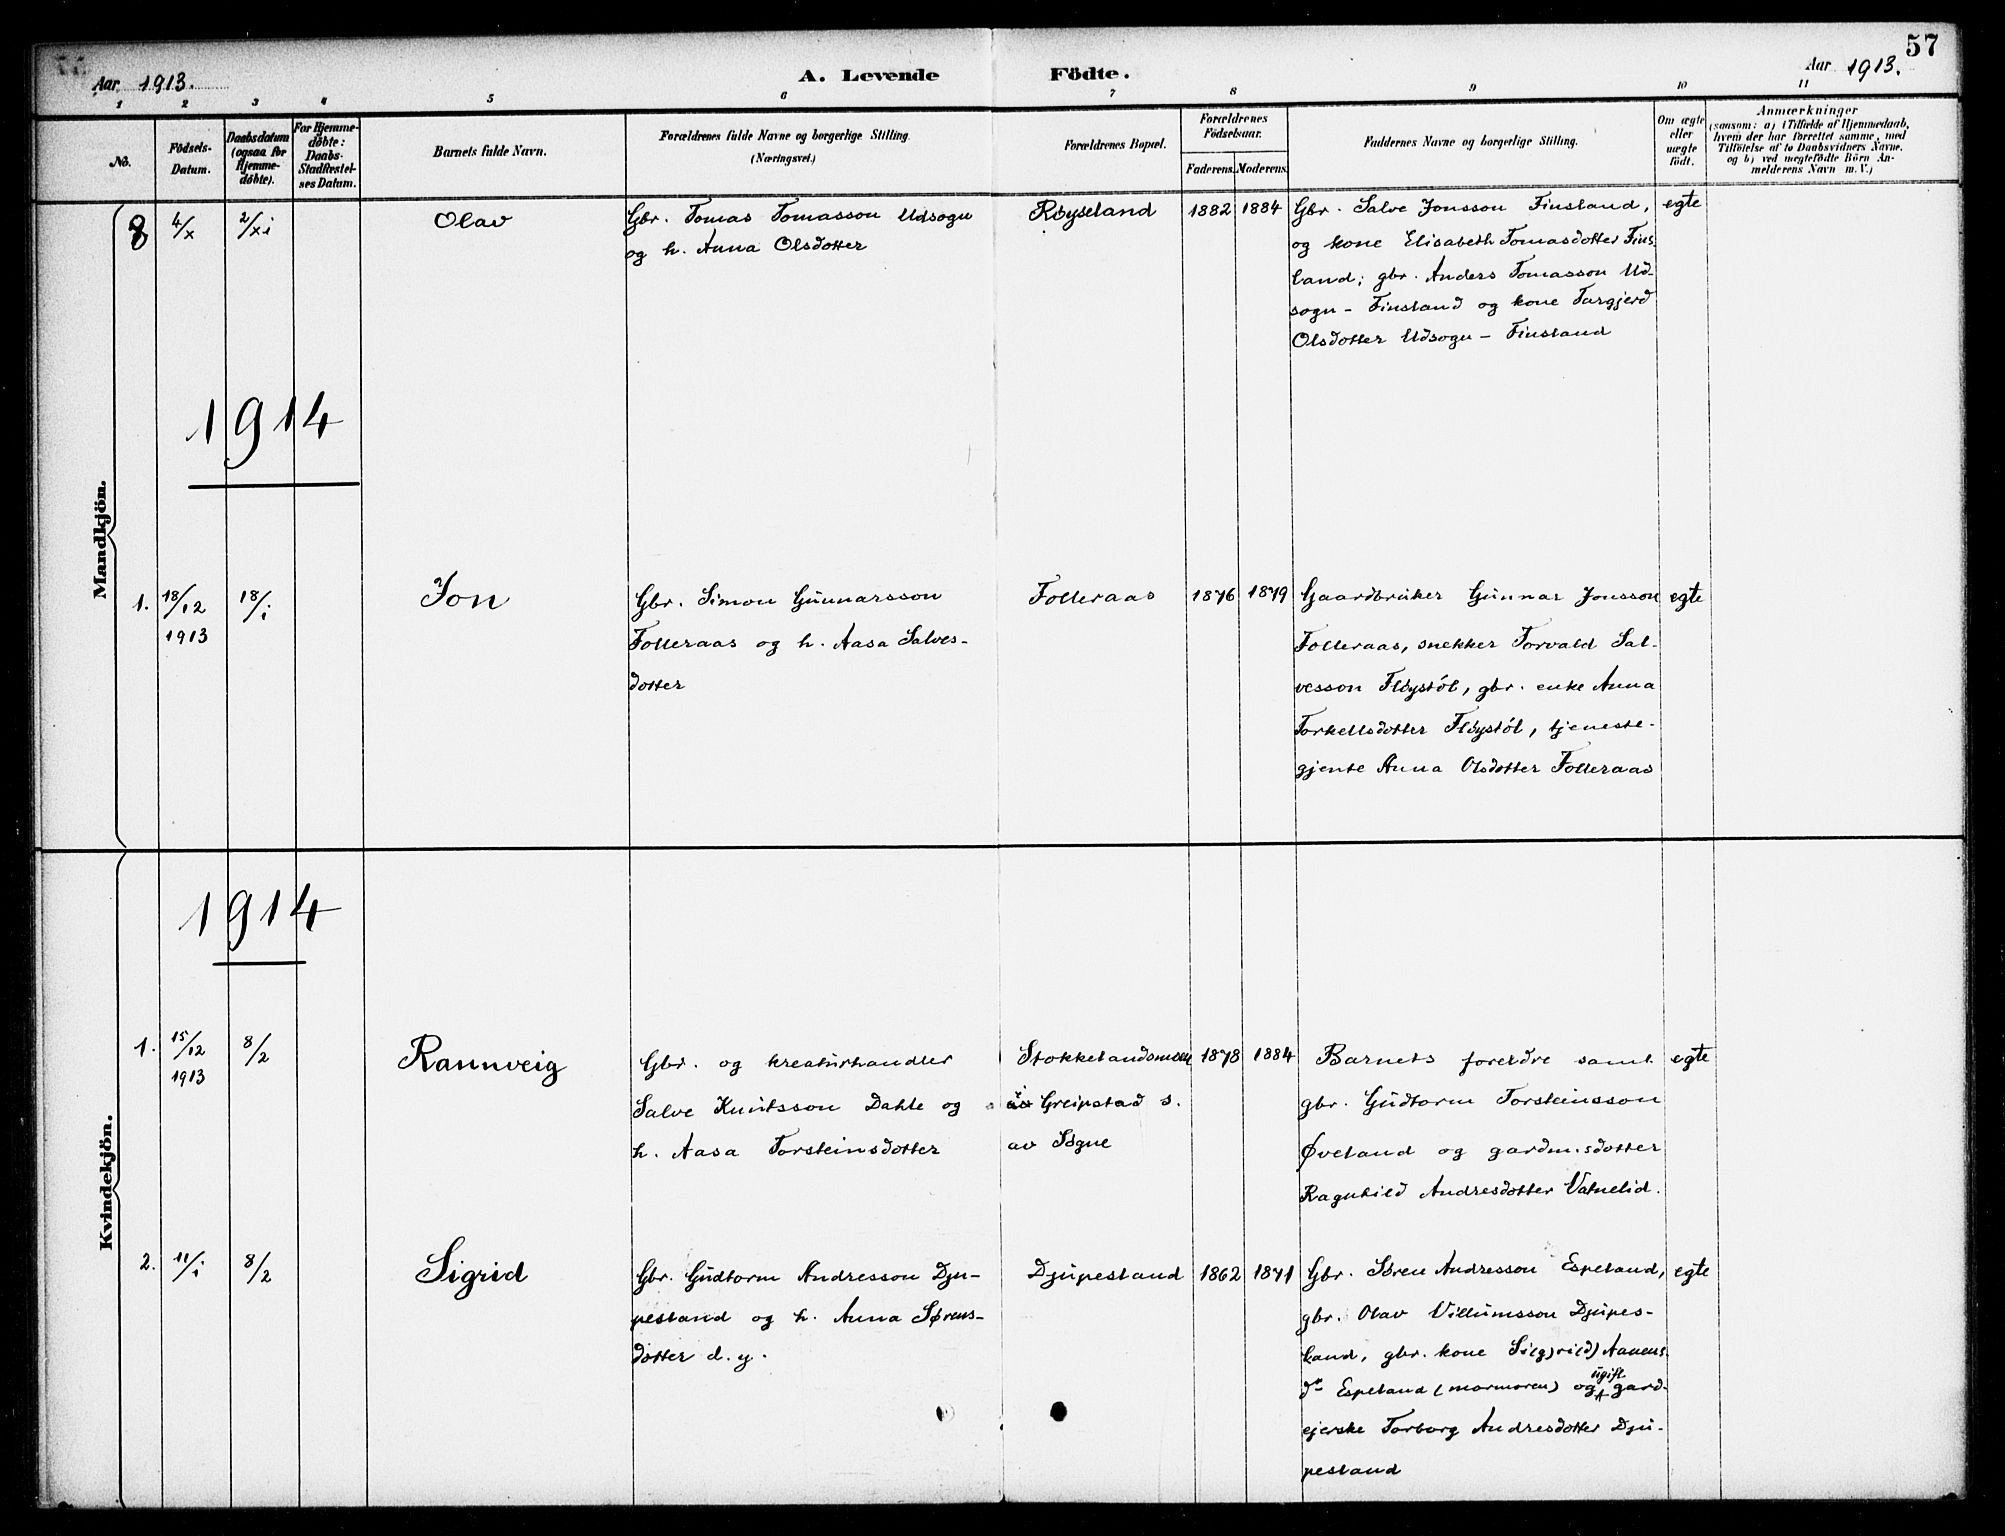 57
Aar 1913. A. Levende Födte. Aar 1913.
1 2 3 4 5 6 7 8 9 10 11
No.
Födsels-
Datum.
Daabsdatum
(ogsaa for
Hjemme-
döbte).
For Hjemme-
döbte:
Daabs-
Stadfæstel-
ses Datum.
Barnets fulde Navn.
Forældrenes fulde Navne og borgerlige Stilling.
(Næringsvei.)
Forældrenes Bopæl.
Forældrenes
Födselsaar.
Faderens. Moderens.
Faddernes Navne og borgerlige Stilling.
Om ægte
eller
uægte
födt.
Anmærkninger
(saasom: a) i Tilfælde af Hjemmedaab,
hvem der har forrettet samme, med
Tilföielse af to Daabsvidners Navne.
og b) ved uægtefödte Börn An-
melderens Navn m. V.)
Mandkjön.
8 4/x 2/xi Olav
Gbr. Tomas Tomasson Udsogn
og h. Anna Olsdotter
Røyseland 1882 1884
Gbr. Salve Jonsson Finsland,
og kone Elisabeth Tomasdotter Fins-
land; gbr. Anders Tomasson Ud-
sogn - Finsland og kone Targjerd
Olsdotter Udsogn - Finsland
egte
1914
1. 18/12 1913 18/i Jon
Gbr. Simon Gunnarsson
Folleraas og h. Aasa Salves-
dotter
Folleraas 1876 1879
Gaardbruker Gunnar Jonsson
Folleraas, snekker Torvald Sal-
vesson Fløystøl, gbr. enke Anna
Torkellsdotter Fløystøl, tjeneste-
gjente Anna Olsdotter Folleraas
egte
Kvindekjön.
1914
1. 15/12 1913 8/2 Rannveig
Gbr. og kreaturhandler
Salve Knutsson Dahle og
h. Aasa Torsteinsdotter
Stokkelandsmoen
i Greipstad s.
av Søgne
1878 1884
Barnets foreldre samt
gbr. Gudtorm Torsteinsson
Øveland og gardm.sdotter
Ragnhild Andresdotter Vatnelid.
egte
2. 11/i 8/2 Sigrid
Gbr. Gudtorm Andresson Dju-
pesland og h. Anna Sørens-
dotter d. y.
Djupesland 1862 1871
Gbr. Søren Andresson Espeland,
gbr. Olav Villumsson Djupes-
land, gbr. kone Si(g)ri(d) Aanens-
dr Espeland (mormoren) og ugift gard-
ejerske Torborg Andresdotter Dju-
pesland
egte